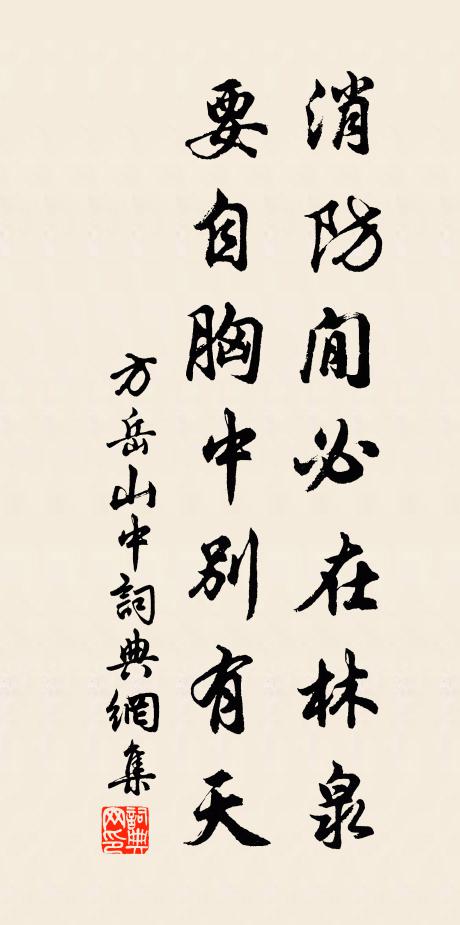 消防閒必在林泉
要自胸中別有天
方岳山中詞典網集
詞典网印